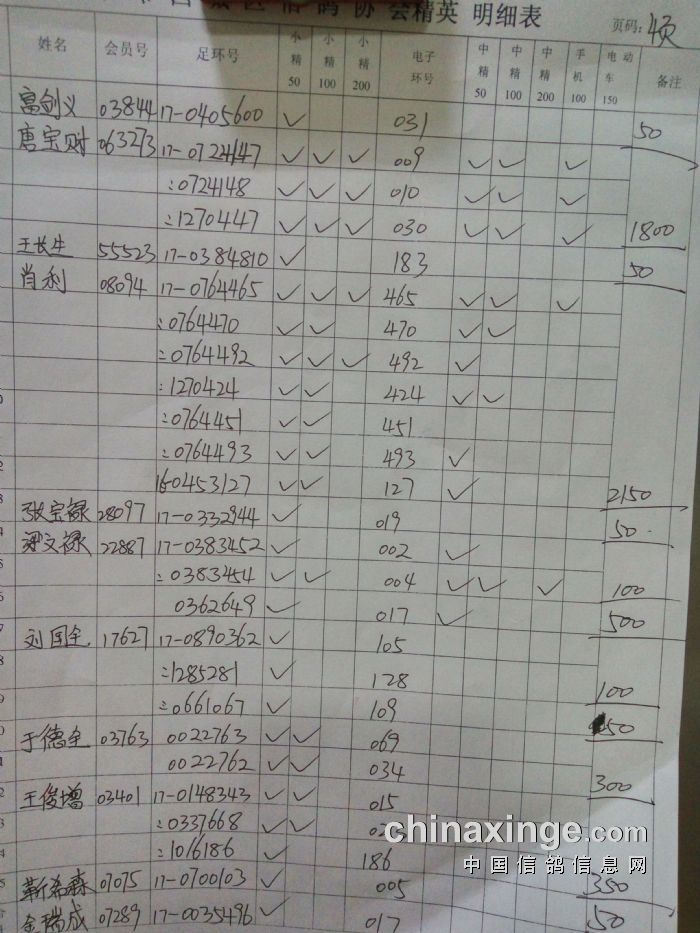 区信鸽协会精英 明细表
页码:
姓名 会员号 足环号 小精50 小精100 小精200 电子环号 中精50 中精100 中精200 手机100 电动车150 备注
富剑义 03844 17-0405600 ✓ 031 50
唐宝财 063273 17-0724147 ✓ ✓ ✓ 009 ✓ ✓ ✓
:0724148 ✓ ✓ ✓ 010 ✓ ✓ ✓
:1270447 ✓ ✓ ✓ 030 ✓ ✓ ✓ 1800
王长生 55523 17-0384810 ✓ 183 50
肖利 08094 17-0764465 ✓ ✓ ✓ 465 ✓ ✓ ✓
:0764470 ✓ ✓ 470 ✓ ✓
:0764492 ✓ ✓ ✓ 492 ✓
:1270424 ✓ ✓ 424 ✓ ✓
:0764451 ✓ ✓ 451
:0764493 ✓ ✓ 493 ✓
16-0453127 ✓ ✓ 127 ✓ 2150
张宝禄 28097 17-0332944 ✓ 019 50
梁文禄 22887 17-0383452 ✓ 002 ✓
:0383454 ✓ ✓ 004 ✓ ✓ ✓ 100
0362649 ✓ 017 ✓ 500
刘国全 17627 17-0890362 ✓ 105
:1285281 ✓ 128 100
:0661067 ✓ 109 50
于德全 03763 0022763 ✓ ✓ 069
0022762 ✓ ✓ 034 300
王俊增 03401 17-0148343 ✓ ✓ 015
:0337668 ✓ ✓
:1016186 ✓ 186
靳希森 07075 17-0700103 ✓ 005 350
金瑞成 07289 17-0035496 ✓ 017 50
chinaxinge.com
中国信鸽信息网